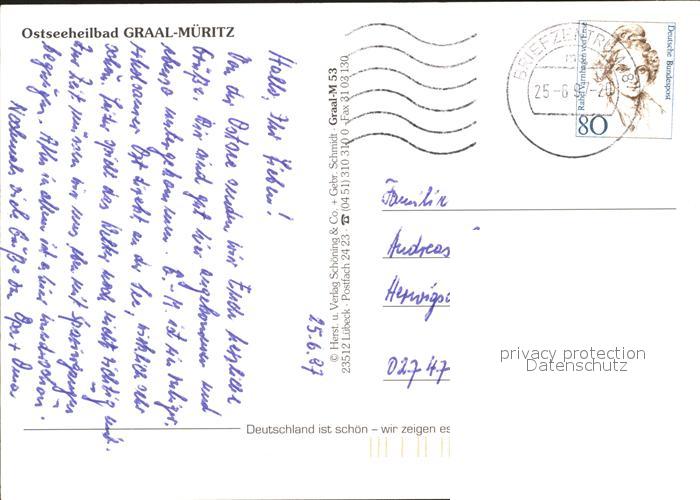 Ostseeheilbad GRAAL-MÜRITZ
Hallo, Ihr Lieben!
Von der Ostsee senden wir Euch herzliche
Grüße. Wir sind gut hier angekommen und
ebenso untergekommen. G.-M. ist ein ruhiger,
erholsamer Ort direkt an der See, wirklich sehr
schön. Leider spielt das Wetter noch nicht richtig mit.
Zur Zeit müssen wir uns eben mit Spaziergängen
begnügen. Alles in allem ist es hier wunderschön.
Nochmals viele Grüße von Opa + Oma
25.6.97
© Herst. u. Verlag Schöning & Co. + Gebr. Schmidt · Graal-M 53
23512 Lübeck · Postfach 24 23 · ☎ (04 51) 310 310 · Fax 31 03 130
BRIEFZENTRUM 18
25-6
-20
Deutsche Bundespost
Rahel Varnhagen von Ense
80
Familie
Andreas
Herwigs
02747
privacy protection
Datenschutz
Deutschland ist schön – wir zeigen es